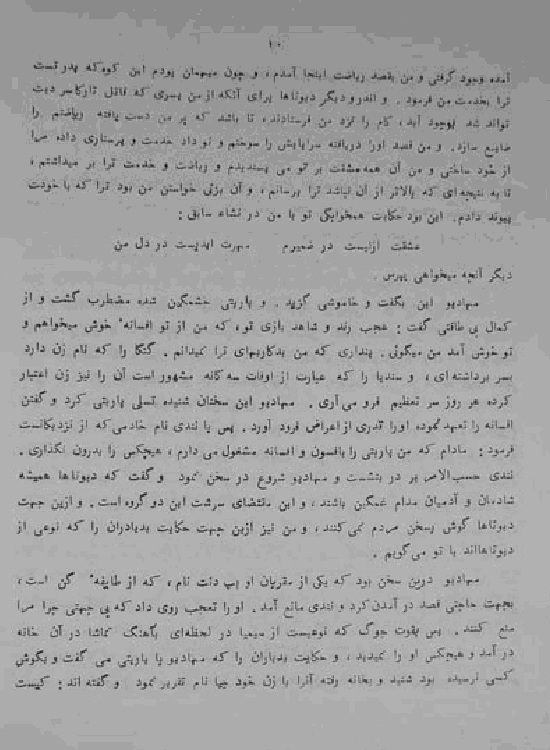 ۱۰
آمده وجود گرفتی و من بقصد ریاضت اینجا آمدم، و چون میهمان بودم این کوه که پدر تست
ترا بخدمت من فرمود. و اندر و دیگر دیوتاها برای آنکه از من پسری که قاتل تارکاسر دیت
تواند شد بوجود آید، کام را نزد من فرستادند، تا باشد که بر من دست یافته ریاضتم را
ضایع سازد. و من قصد او را دریافته سراپایش را سوختم و تو داد خدمت و پرستاری داده مرا
از خود ساختی و من آن همه مشقت بر تو می پسندیدم و ریاضت و خدمت ترا بر میداشتم،
تا به نتیجه‌ای که بالاتر از آن نباشد ترا برسانم، و آن بزنی خواستن من بود ترا که با خودت
پیوند دادم. این بود حکایت همخوابگی تو با من در نشاء سابق:
عشقت ازلیست در ضمیرم مهرت ابدیست در دل من
دیگر آنچه میخواهی بپرس.
مهادیو این بگفت و خاموشی گزید. و پاربتی خشمگین شده مضطرب گشت و از
کمال بی طاقتی گفت: عجب رند و شاهد بازی تو، که من از تو افسانهٔ خوش میخواهم و
تو خوش آمد من میگوئی. پنداری که من بدکاریهای ترا نمیدانم. گنگا را که نام زن دارد
بسر برداشته‌ای، و سندیا را که عبارت از اوقات سه گانه مشهور است آن را نیز زن اعتبار
کرده هر روز سر تعظیم فرو می آری. مهادیو این سخنان شنیده تسلی پاربتی کرد و گفتن
افسانه را تعهد نموده او را قدری از اعراض فرود آورد. پس با نندی نام خادمی که از نزدیکانست
فرمود: مادام که من پاربتی را بافسون و افسانه مشغول می دارم، هیچکس را بدرون نگذاری.
نندی حسب الامر بر در بنشست و مهادیو شروع در سخن نمود و گفت که دیوتاها همیشه
شادمان و آدمیان مدام غمگین باشند، و این مقتضای سرشت این دو گروه است. و ازین جهت
دیوتاها گوش بسخن مردم نمی کنند، و من نیز ازین جهت حکایت بدیادران را که نوعی از
دیوتاهااند با تو می گویم.
مهادیو درین سخن بود که یکی از مقربان او پپ دنت نام، که از طایفهٔ گن است،
بجهت حاجتی قصد در آمدن کرد و نندی مانع آمد. او را تعجب روی داد که بی جهتی چرا مرا
منع کنند. پس بقوت جوگ که نوعیست از سیمیا در لحظه‌ای بآهنگ تماشا در آن خانه
در آمد و هیچکس او را نمیدید، و حکایت بدیاران را که مهادیو با پاربتی می گفت و بگوش
کسی نرسیده بود شنید و بخانه رفته آنرا با زن خود جیا نام تقریر نمود و گفته اند: کیست